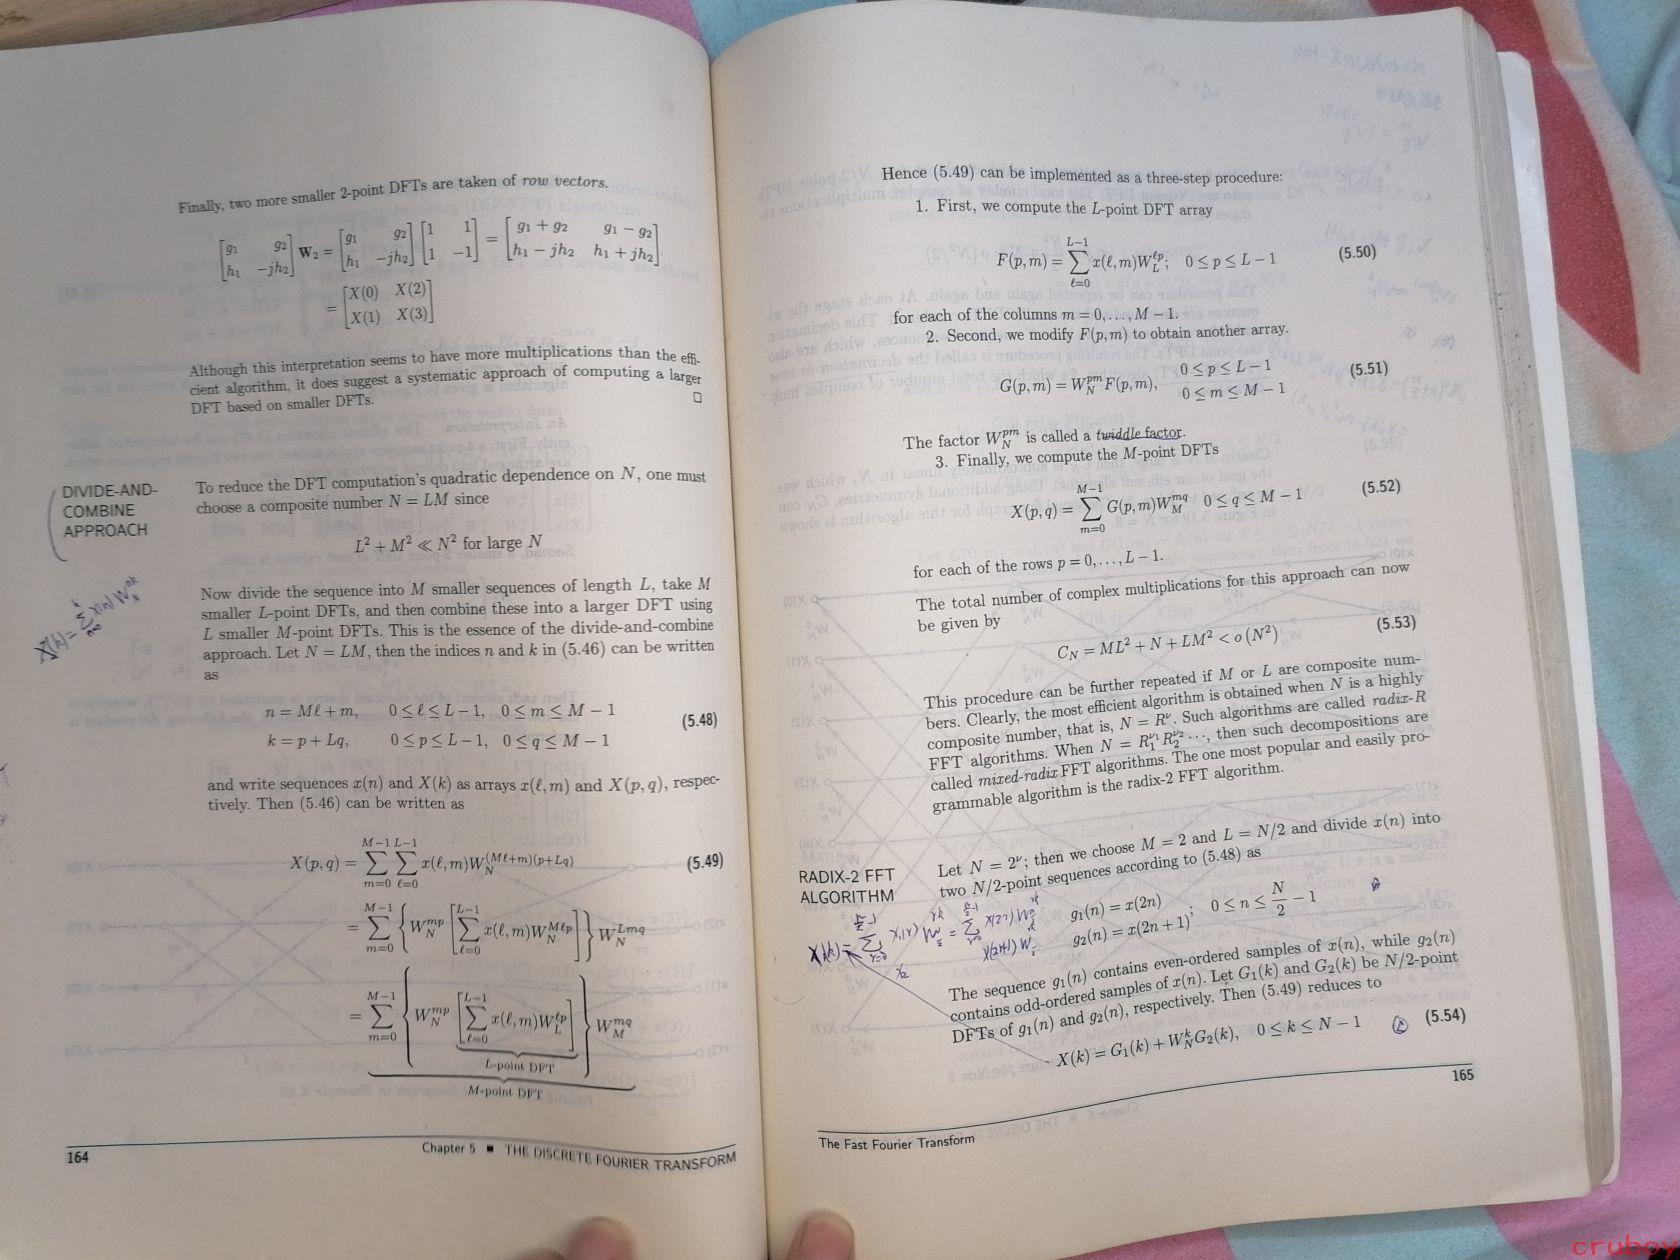 Finally, two more smaller 2-point DFTs are taken of row vectors.
[g₁ g₂; h₁ −jh₂] W₂ = [g₁ g₂; h₁ −jh₂] [1 1; 1 −1] = [g₁ + g₂ g₁ − g₂; h₁ − jh₂ h₁ + jh₂]
= [X(0) X(2); X(1) X(3)]
Although this interpretation seems to have more multiplications than the effi-
cient algorithm, it does suggest a systematic approach of computing a larger
DFT based on smaller DFTs. □
DIVIDE-AND-
COMBINE
APPROACH
To reduce the DFT computation's quadratic dependence on N, one must
choose a composite number N = LM since
L² + M² ≪ N² for large N
Now divide the sequence into M smaller sequences of length L, take M
smaller L-point DFTs, and then combine these into a larger DFT using
L smaller M-point DFTs. This is the essence of the divide-and-combine
approach. Let N = LM, then the indices n and k in (5.46) can be written
as
n = Mℓ + m, 0 ≤ ℓ ≤ L − 1, 0 ≤ m ≤ M − 1
k = p + Lq, 0 ≤ p ≤ L − 1, 0 ≤ q ≤ M − 1 (5.48)
and write sequences x(n) and X(k) as arrays x(ℓ, m) and X(p, q), respec-
tively. Then (5.46) can be written as
X(p, q) = ∑_{m=0}^{M−1} ∑_{ℓ=0}^{L−1} x(ℓ, m)W_N^{(Mℓ+m)(p+Lq)} (5.49)
= ∑_{m=0}^{M−1} { W_N^{mp} [ ∑_{ℓ=0}^{L−1} x(ℓ, m)W_N^{Mℓp} ] } W_N^{Lmq}
= ∑_{m=0}^{M−1} { W_N^{mp} [ ∑_{ℓ=0}^{L−1} x(ℓ, m)W_L^{ℓp} ] } W_M^{mq}
L-point DFT
M-point DFT
164
Chapter 5 ■ THE DISCRETE FOURIER TRANSFORM
Hence (5.49) can be implemented as a three-step procedure:
1. First, we compute the L-point DFT array
F(p, m) = ∑_{ℓ=0}^{L−1} x(ℓ, m)W_L^{ℓp}; 0 ≤ p ≤ L − 1 (5.50)
for each of the columns m = 0, . . . , M − 1.
2. Second, we modify F(p, m) to obtain another array.
G(p, m) = W_N^{pm} F(p, m), 0 ≤ p ≤ L − 1
0 ≤ m ≤ M − 1 (5.51)
The factor W_N^{pm} is called a twiddle factor.
3. Finally, we compute the M-point DFTs
X(p, q) = ∑_{m=0}^{M−1} G(p, m)W_M^{mq} 0 ≤ q ≤ M − 1 (5.52)
for each of the rows p = 0, . . . , L − 1.
The total number of complex multiplications for this approach can now
be given by
C_N = ML² + N + LM² < o(N²) (5.53)
This procedure can be further repeated if M or L are composite num-
bers. Clearly, the most efficient algorithm is obtained when N is a highly
composite number, that is, N = R^ν. Such algorithms are called radix-R
FFT algorithms. When N = R₁^{ν₁} R₂^{ν₂} · · ·, then such decompositions are
called mixed-radix FFT algorithms. The one most popular and easily pro-
grammable algorithm is the radix-2 FFT algorithm.
RADIX-2 FFT
ALGORITHM
Let N = 2^ν; then we choose M = 2 and L = N/2 and divide x(n) into
two N/2-point sequences according to (5.48) as
g₁(n) = x(2n)
g₂(n) = x(2n + 1) ; 0 ≤ n ≤ N/2 − 1
The sequence g₁(n) contains even-ordered samples of x(n), while g₂(n)
contains odd-ordered samples of x(n). Let G₁(k) and G₂(k) be N/2-point
DFTs of g₁(n) and g₂(n), respectively. Then (5.49) reduces to
X(k) = G₁(k) + W_N^k G₂(k), 0 ≤ k ≤ N − 1 (5.54)
The Fast Fourier Transform
165
cruboy